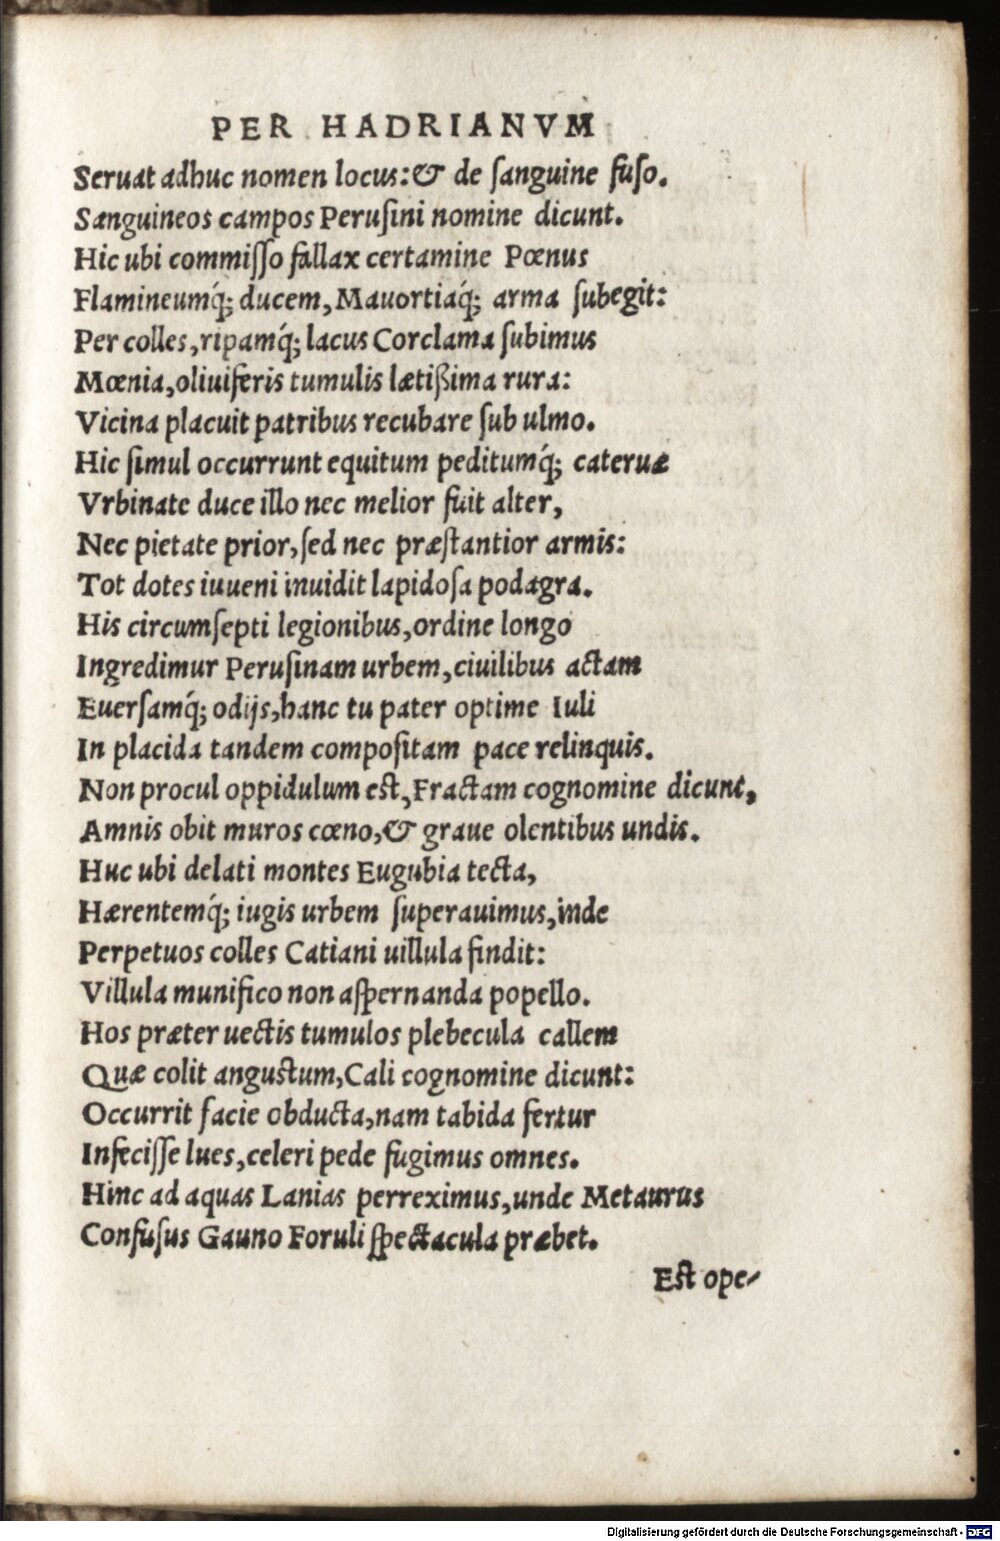 PER HADRIANVM
Seruat adhuc nomen locus: & de sanguine fuso.
Sanguineos campos Perusini nomine dicunt.
Hic ubi commisso fallax certamine Pœnus
Flamineumq́; ducem, Mauortiaq́; arma subegit:
Per colles, ripamq́; lacus Corclama subimus
Mœnia, oliuiferis tumulis lætißima rura:
Vicina placuit patribus recubare sub ulmo.
Hic simul occurrunt equitum peditumq́; cateruæ
Vrbinate duce illo nec melior fuit alter,
Nec pietate prior, sed nec præstantior armis:
Tot dotes iuueni inuidit lapidosa podagra.
His circumsepti legionibus, ordine longo
Ingredimur Perusinam urbem, ciuilibus actam
Euersamq́; odijs, hanc tu pater optime Iuli
In placida tandem compositam pace relinquis.
Non procul oppidulum est, Fractam cognomine dicunt,
Amnis obit muros cœno, & graue olentibus undis.
Huc ubi delati montes Eugubia tecta,
Hærentemq́; iugis urbem superauimus, inde
Perpetuos colles Catiani uillula findit:
Villula munifico non aspernanda popello.
Hos præter uectis tumulos plebecula callem
Quæ colit angustum, Cali cognomine dicunt:
Occurrit facie obducta, nam tabida fertur
Infecisse lues, celeri pede fugimus omnes.
Hinc ad aquas Lanias perreximus, unde Metaurus
Confusus Gauno Foruli spectacula præbet.
Est ope-
Digitalisierung gefördert durch die Deutsche Forschungsgemeinschaft - DFG